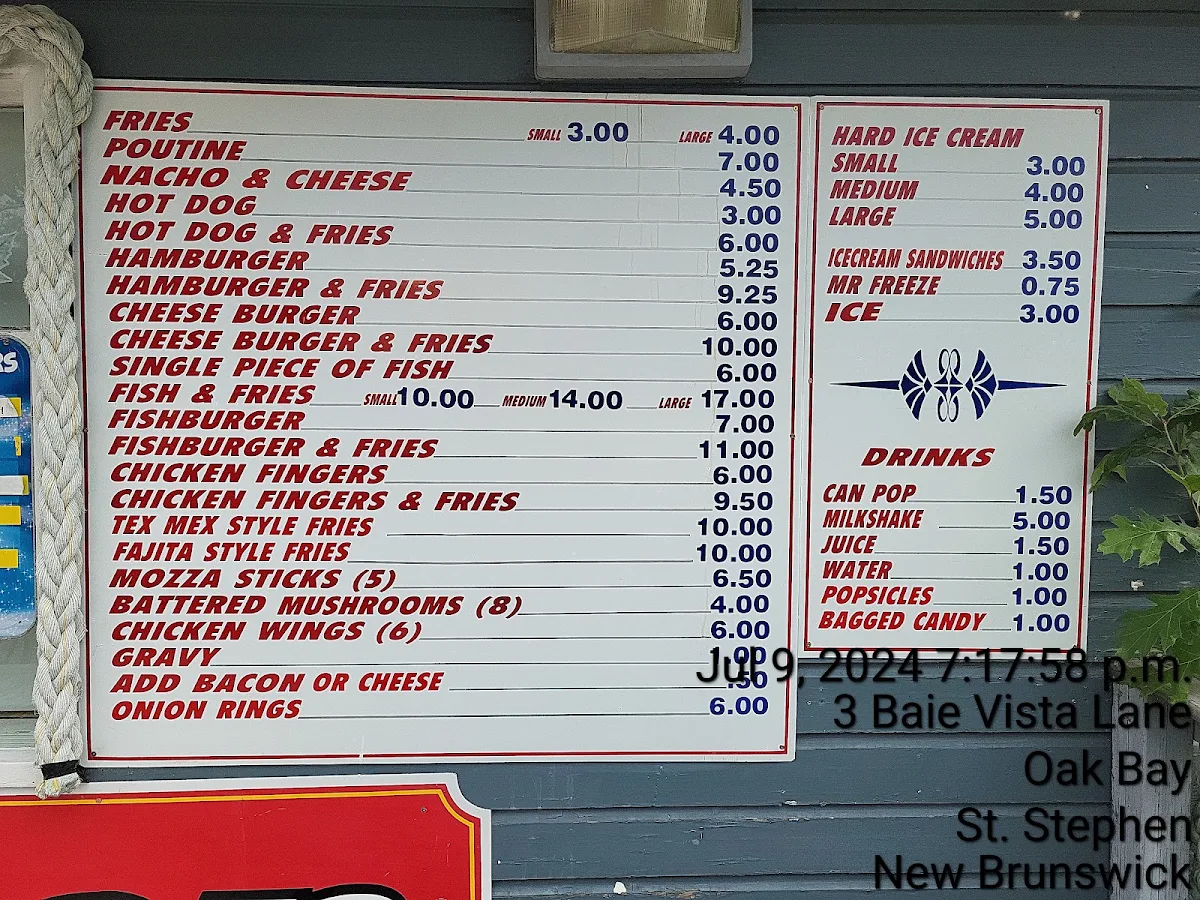 FRIES SMALL 3.00 LARGE 4.00
POUTINE 7.00
NACHO & CHEESE 4.50
HOT DOG 3.00
HOT DOG & FRIES 6.00
HAMBURGER 5.25
HAMBURGER & FRIES 9.25
CHEESE BURGER 6.00
CHEESE BURGER & FRIES 10.00
SINGLE PIECE OF FISH 6.00
FISH & FRIES SMALL 10.00 MEDIUM 14.00 LARGE 17.00
FISHBURGER 7.00
FISHBURGER & FRIES 11.00
CHICKEN FINGERS 6.00
CHICKEN FINGERS & FRIES 9.50
TEX MEX STYLE FRIES 10.00
FAJITA STYLE FRIES 10.00
MOZZA STICKS (5) 6.50
BATTERED MUSHROOMS (8) 4.00
CHICKEN WINGS (6) 6.00
GRAVY 1.00
ADD BACON OR CHEESE .50
ONION RINGS 6.00
HARD ICE CREAM
SMALL 3.00
MEDIUM 4.00
LARGE 5.00
ICECREAM SANDWICHES 3.50
MR FREEZE 0.75
ICE 3.00
DRINKS
CAN POP 1.50
MILKSHAKE 5.00
JUICE 1.50
WATER 1.00
POPSICLES 1.00
BAGGED CANDY 1.00
Jul 9, 2024 7:17:58 p.m.
3 Baie Vista Lane
Oak Bay
St. Stephen
New Brunswick